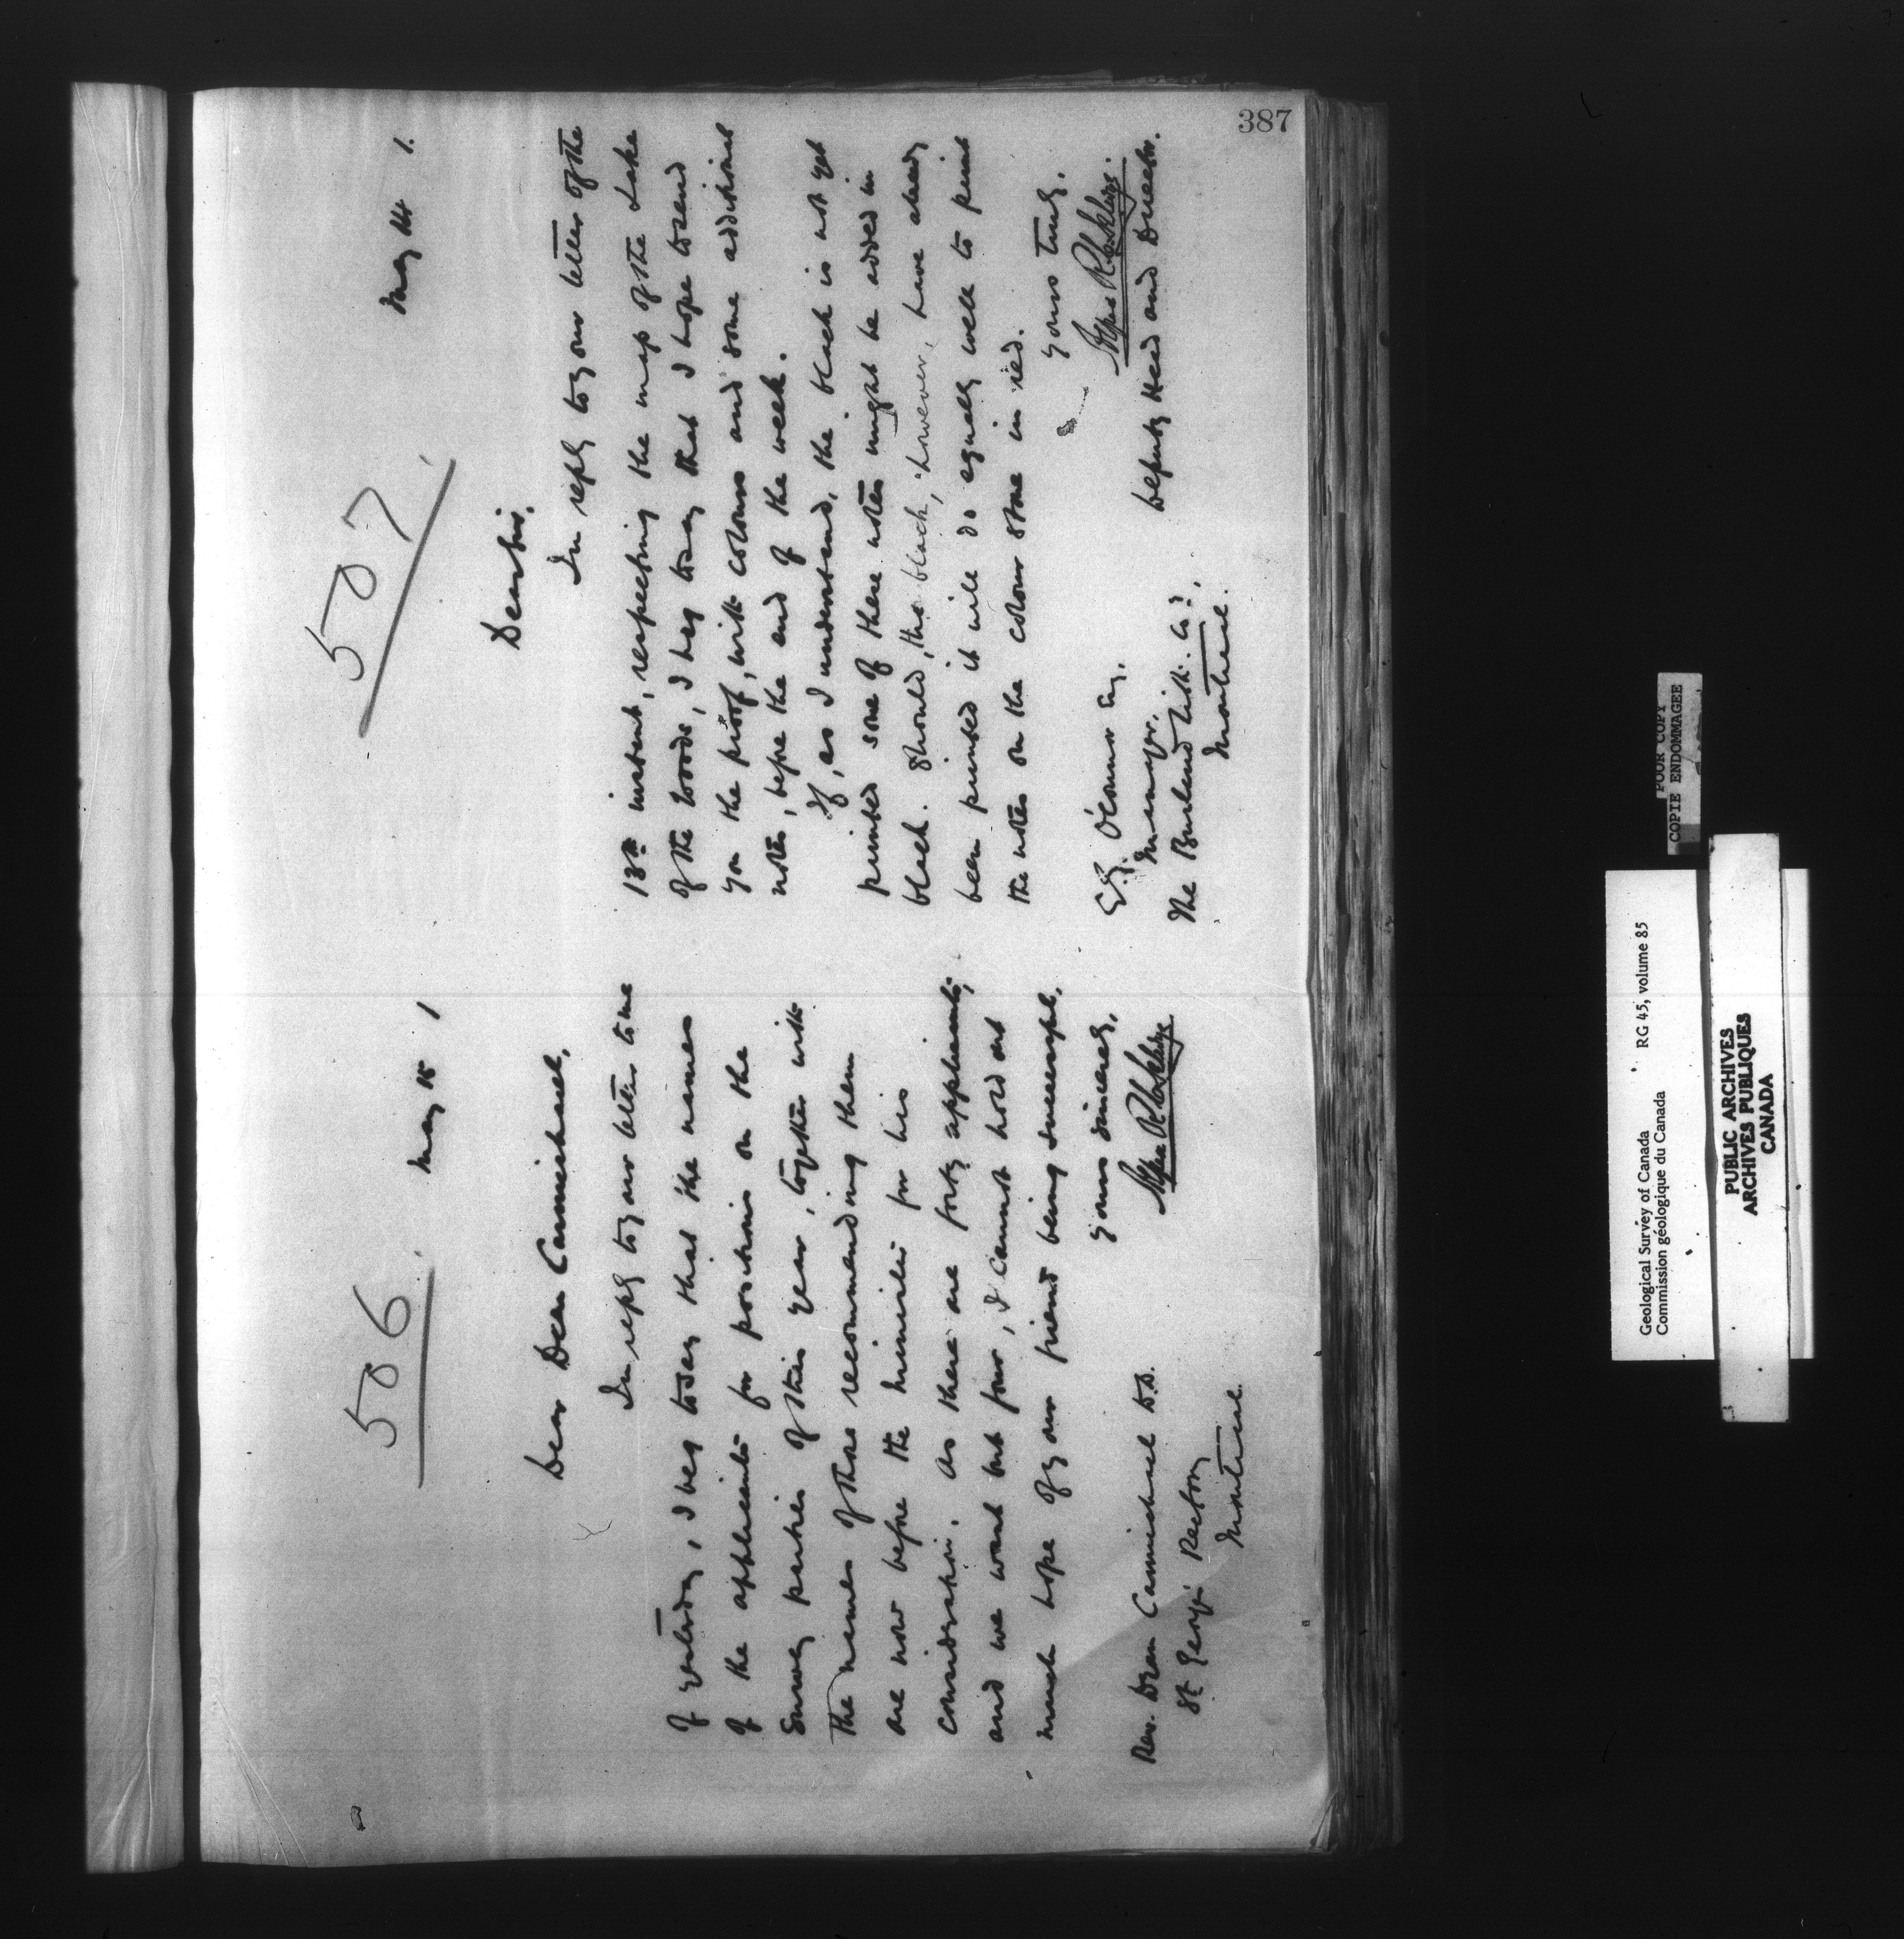 387
506
May 15 1
Dear Dean Carmichael,
In reply to your letter to me
of yesterday, I beg to say that the names
of the applicants for positions on the
Survey parties of this year, together with
the names of those recommending them
are now before the Minister for his
consideration. As there are forty applicants,
and we want but four, I cannot hold out
much hope of your friend being successful.
Yours sincerely,
Rev. Dean Carmichael D.D.
St. George's Rectory
Montreal.
507
May 14 1.
Dear Sir,
In reply to your letter of the
13th instant, respecting the map of the Lake
of the Woods, I beg to say that I hope to send
you the proof, with colours and some additional
notes, before the end of the week.
If, as I understand, the black is not yet
printed some of these notes might be added in
black. Should, the black, however, have already
been printed it will do equally well to print
the notes on the colour stone in red.
Yours truly,
Deputy Head and Director.
O'Connor Esq.
Manager.
The Burland Lith. Co.
Montreal.
POOR COPY
COPIE ENDOMMAGEE
Geological Survey of Canada RG 45, volume 85
Commission géologique du Canada
PUBLIC ARCHIVES
ARCHIVES PUBLIQUES
CANADA